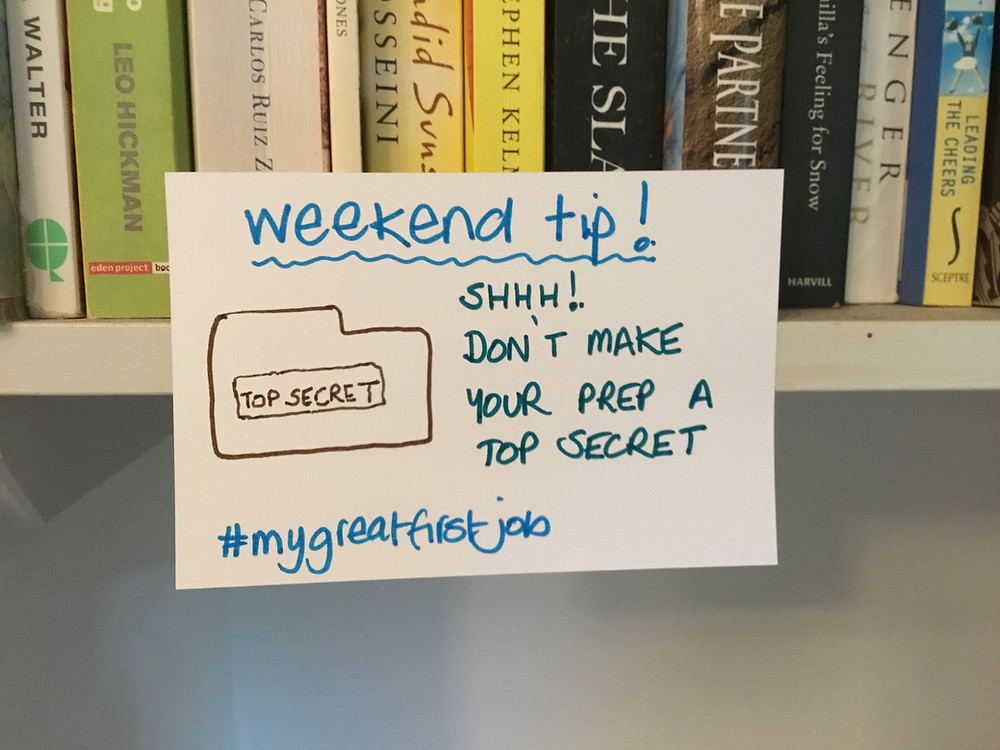 WALTER
LEO HICKMAN
eden project
CARLOS RUIZ Z
ONES
OSSEINI
did Suns
EPHEN KELM
HE SLA
E PARTNE
illa's Feeling for Snow
HARVILL
ENGER
RIVER
LEADING
THE CHEERS
SCEPTRE
weekend tip!
SHHH!
DON'T MAKE
YOUR PREP A
TOP SECRET
TOP SECRET
#mygreatfirstjob